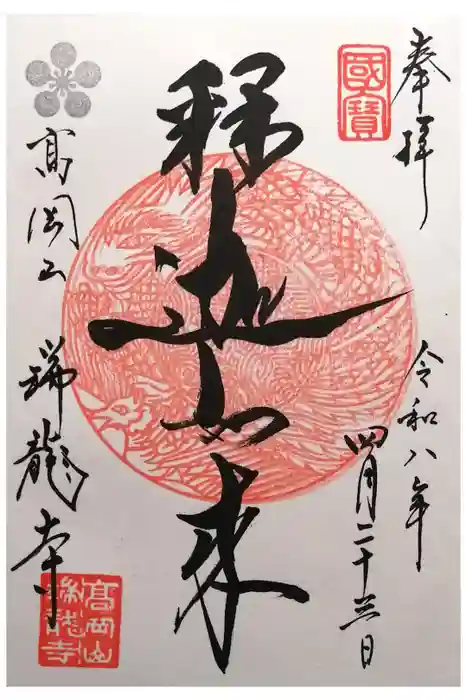 奉拝
國寳
令和八年
四月二十三日
釋迦如来
髙岡山
瑞龍寺
髙岡山
瑞龍寺